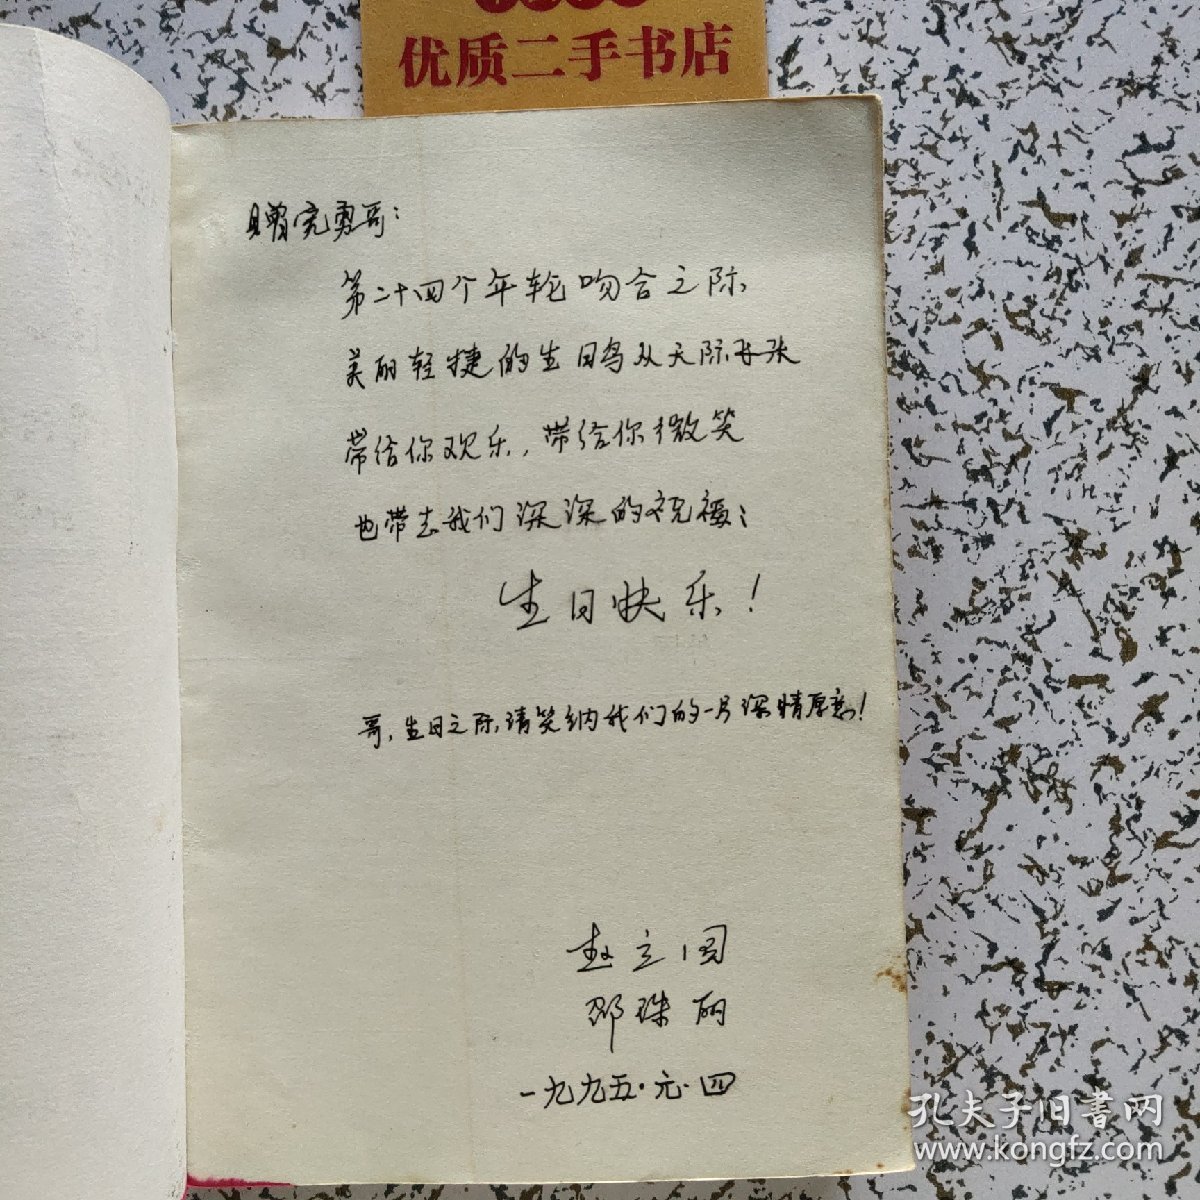 优质二手书店
赠宪勇哥:
第二十四个年轮吻合之际
美丽轻捷的生日鸟从天际飞来
带给你欢乐,带给你微笑
也带去我们深深的祝福:
生日快乐!
哥,生日之际,请笑纳我们的一片深情厚意!
赵立
邵珠丽
一九九五·元·四
孔夫子旧书网
www.kongfz.com